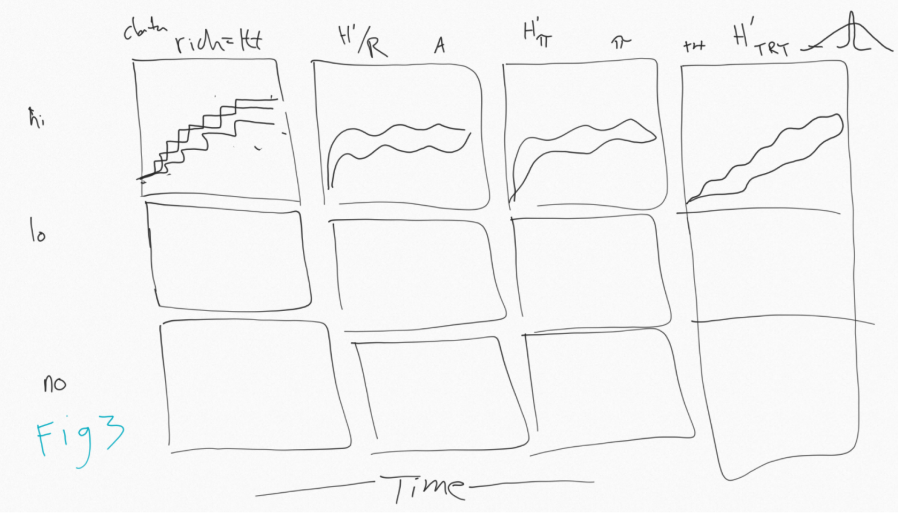 data rich=Ht H'/R A H'π π H'TRT
hi
lo
no
Fig 3
Time